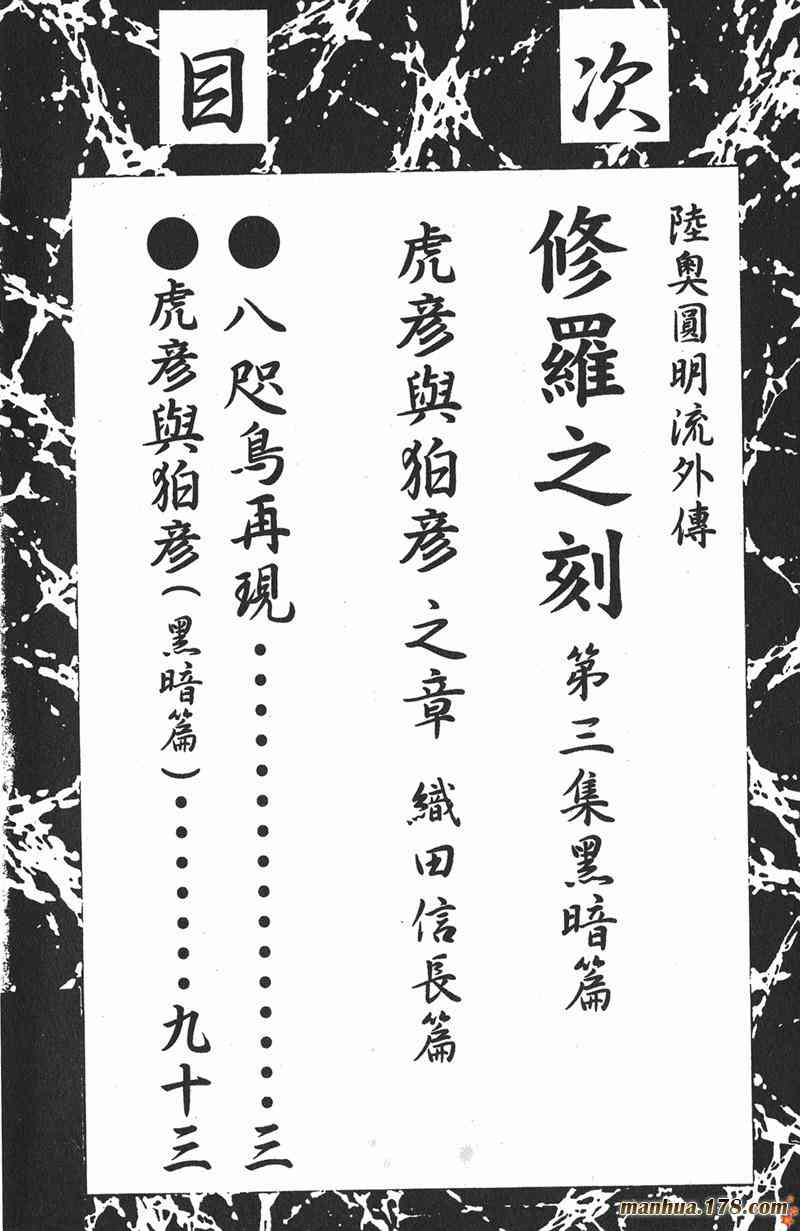 目次
陸奧圓明流外傳
修羅之刻 第三集黑暗篇
虎彦與狛彦之章 織田信長篇
●八咫鳥再現・・・・・・・・・・・・・・・・三
●虎彦與狛彦(黑暗篇)・・・・・・・九十三
manhua.178.com